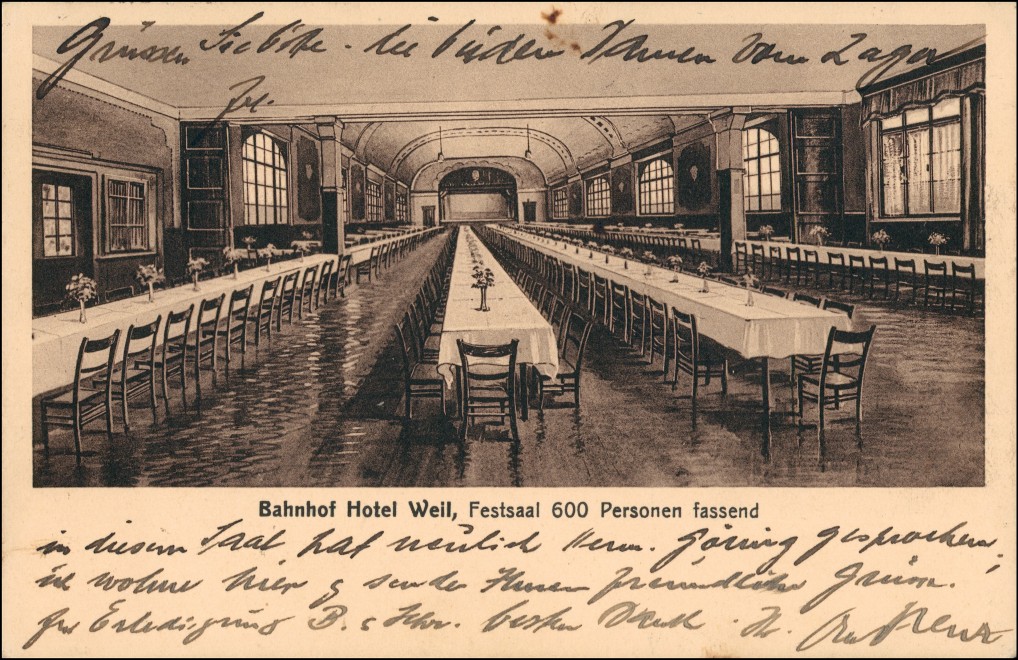 Grüssen Sie bitte die beiden Damen vom Lager
Frl.
Bahnhof Hotel Weil, Festsaal 600 Personen fassend
in diesem Saal hat neulich Herm. Göring gesprochen,
ich wohne hier & sende Ihnen freundliche Grüsse.
für Erledigung B. besten Dank. Ihr